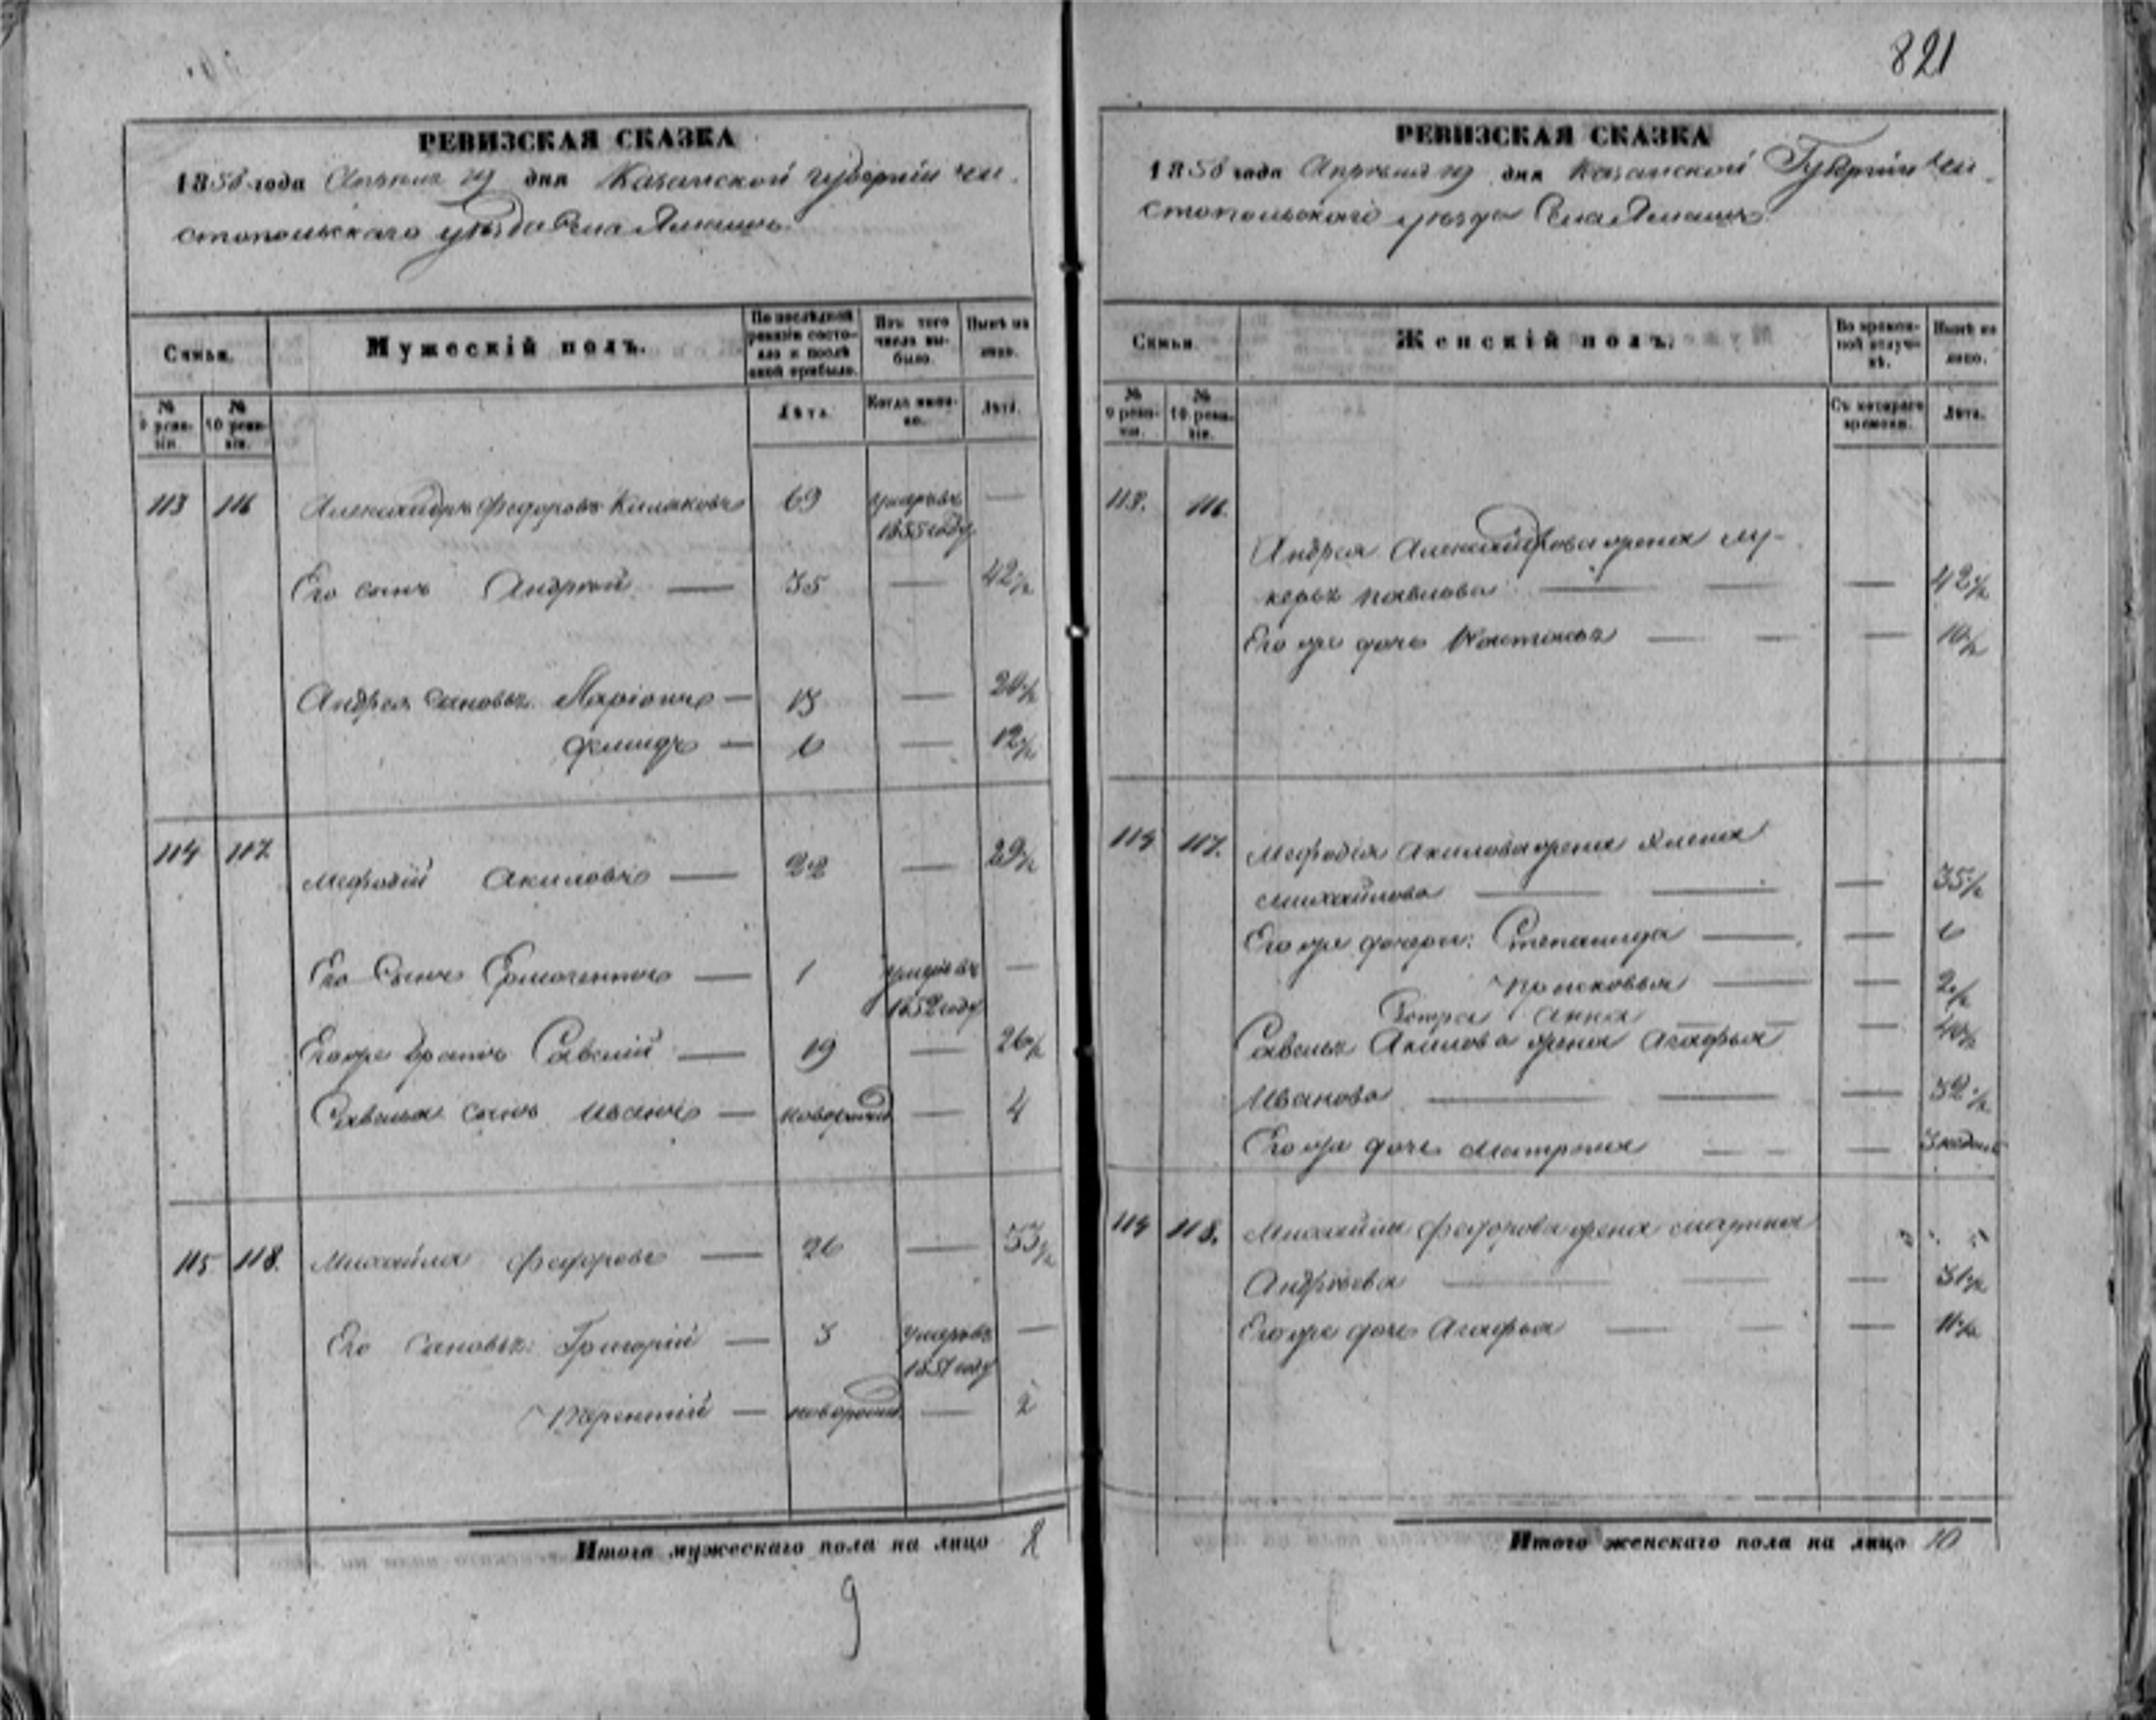 821
РЕВИЗСКАЯ СКАЗКА
1858 года Апреля 19 дня Казанской губерніи Чи-
стопольскаго уѣзда Села
Семьи.
Мужескій полъ.
По послѣдней ревизіи состо-
яло и послѣ
оной прибыло.
Изъ того
числа вы-
было.
Нынѣ на
лицо.
№
9 реви-
зіи.
№
10 реви-
зіи.
Лѣта.
Когда имен-
но.
Лѣта.
113 116 Александръ Федоровъ 69 умеръ въ —
1855 году
Его сынъ Андрей — 35 — 42 1/2
Андрея сыновья Ларіонъ — 13 — 20 1/2
— 6 — 12 1/2
114 117 Мефодій Акиловъ — 22 — 29 1/2
Его Сынъ — 1 —
1852 году
Его же братъ Савелій — 19 — 26 1/2
Савелья сынъ Иванъ — новорожд. — 4
115 118. Михайла Федоровъ — 26 — 33 1/2
Его Сыновья: Григорій — 3 умеръ въ —
1851 году
Терентій — новорожд. — 2
Итого мужескаго пола на лицо 8
9
РЕВИЗСКАЯ СКАЗКА
1858 года Апреля 19 дня Казанской Губерніи Чи-
стопольскаго уѣзда Села
Семьи.
Женскій полъ.
Во времен-
ной отлуч-
кѣ.
Нынѣ на
лицо.
№
9 реви-
зіи.
№
10 реви-
зіи.
Съ котораго
времени.
Лѣта.
113. 116.
Андрея Александрова жена Лу-
керья Павлова — — — 42 1/2
Его же дочь — — — 10 1/2
114 117. Мефодія Акилова жена
Михайлова — — — 35 1/2
Его же дочери: Степанида — — 6
Просковья — — 2 1/2
Сестра Анна — — — 40 1/2
Савелья Акилова жена Агафья
Иванова — — — 32 1/2
Его же дочь Матрена — — — 3 недели
114 118. Михайлы Федорова жена Марина
Андреева — — — 31 1/2
Его же дочь Агафья — — — 11 1/2
Итого женскаго пола на лицо 10